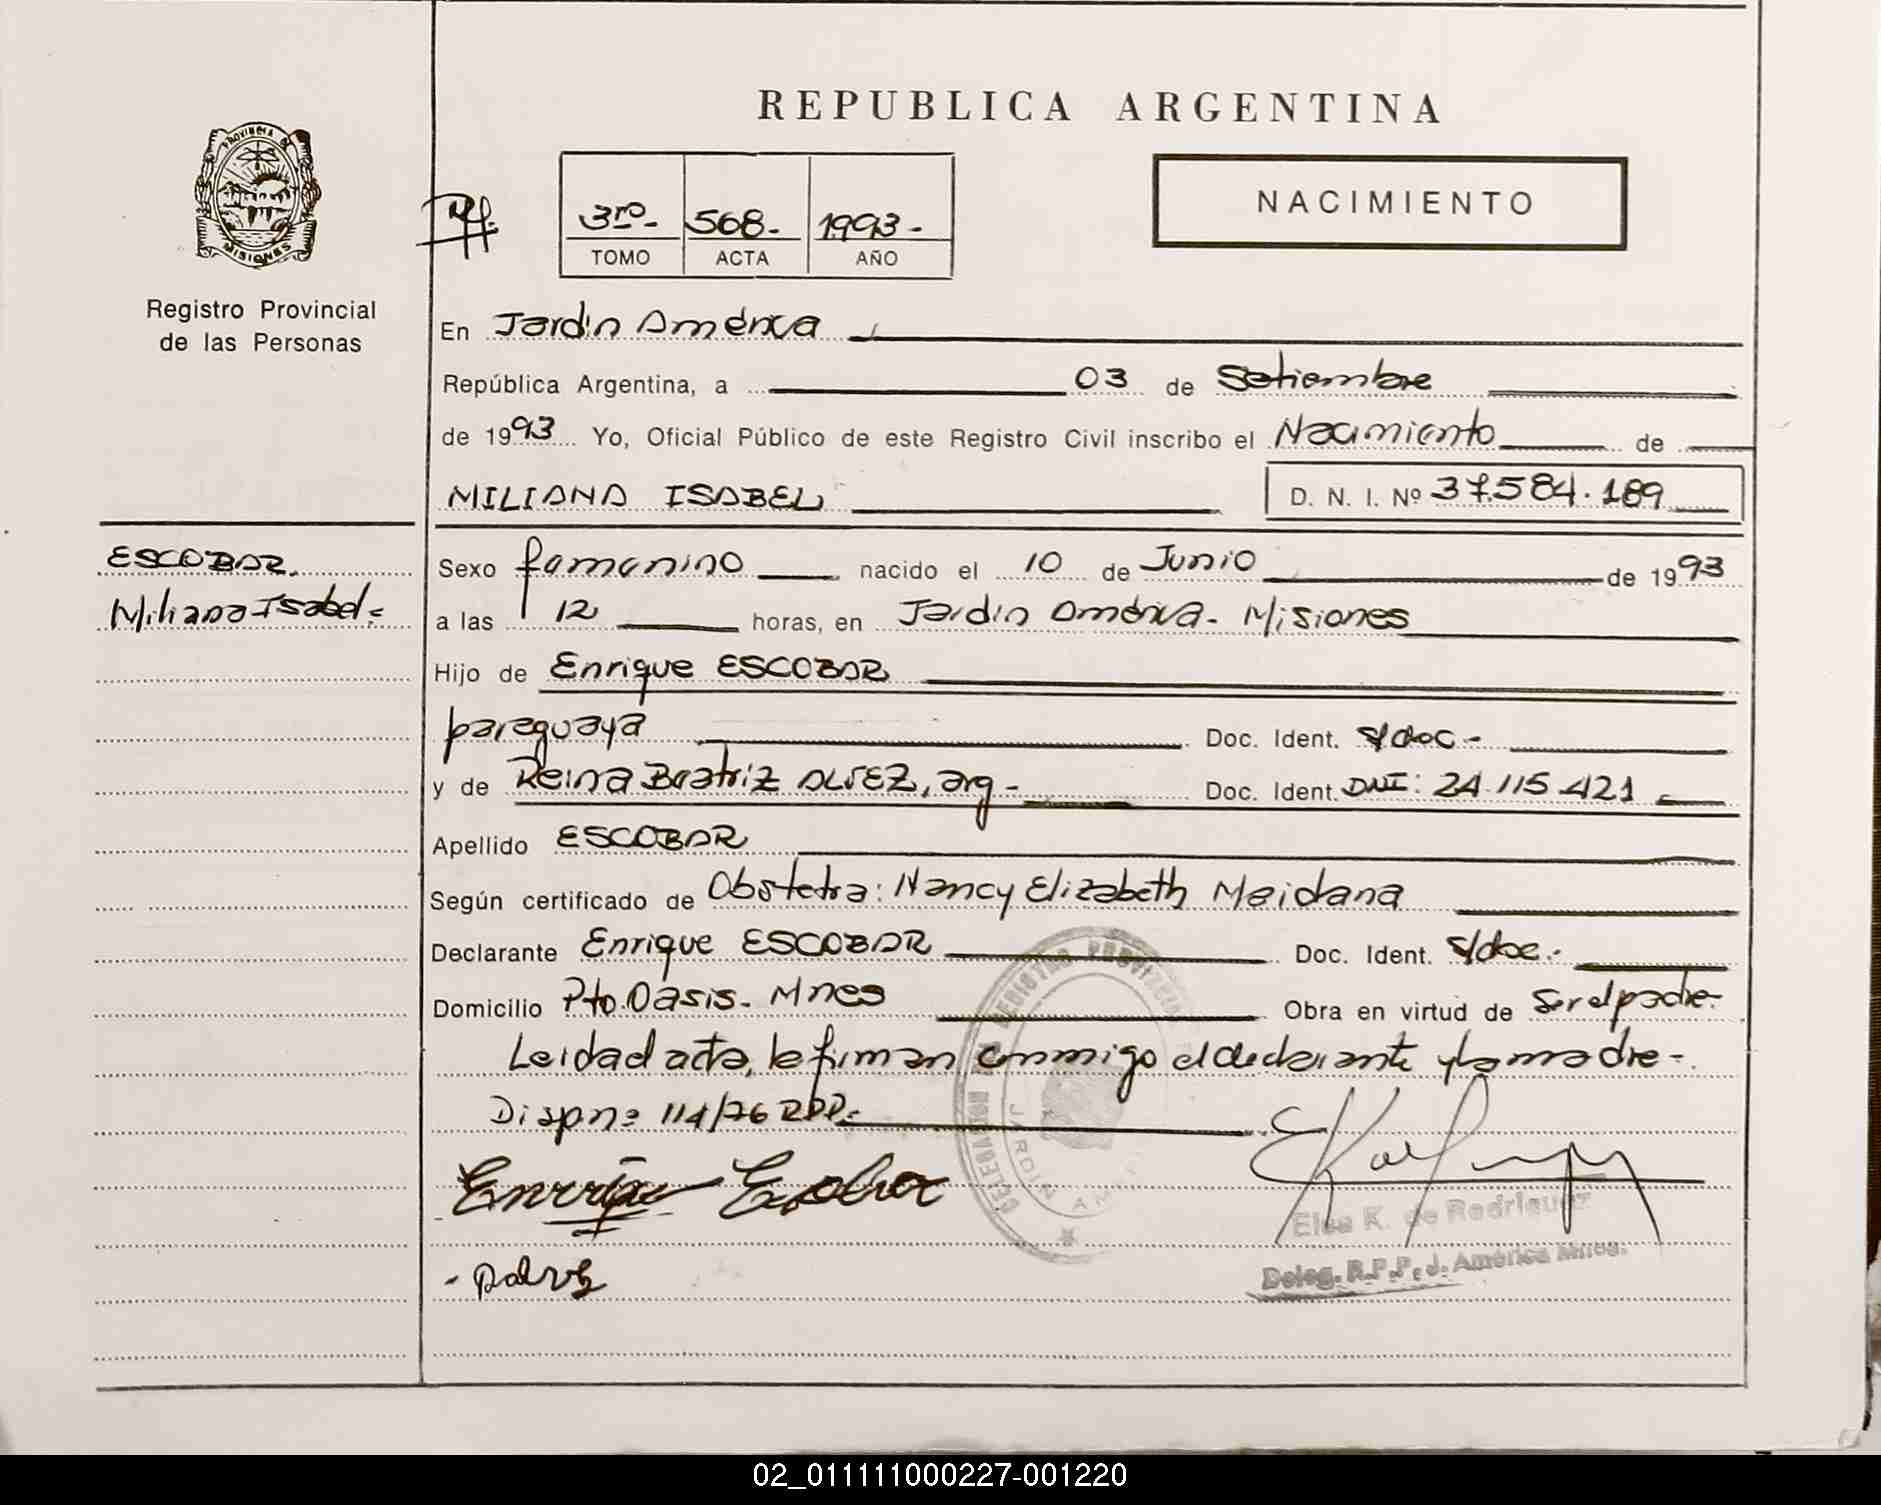 REPUBLICA ARGENTINA
PROVINCIA DE
MISIONES
Registro Provincial
de las Personas
3ro- 568- 1993-
TOMO ACTA AÑO
NACIMIENTO
En Jardin América
República Argentina, a 03 de Setiembre
de 1993 Yo, Oficial Público de este Registro Civil inscribo el Nacimiento de
MILIANA ISABEL D. N. I. Nº 37.584.189
ESCOBAR
Miliana Isabel=
Sexo femenino nacido el 10 de Junio de 1993
a las 12 horas, en Jardin América- Misiones
Hijo de Enrique ESCOBAR
paraguaya Doc. Ident. s/doc-
y de Reina Beatriz ALVEZ, arg- Doc. Ident. DNI: 24.115.421
Apellido ESCOBAR
Según certificado de Obstetra: Nancy Elizabeth Meidana
Declarante Enrique ESCOBAR Doc. Ident. s/doc.
Domicilio Pto. Oasis- Mnes Obra en virtud de Ser el padre-
Leida el acta, la firman conmigo el declarante y la madre-
Dispn= 114/76 RPP=
Enrique Escobar
DELEGACION REGISTRO PROVINCIAL
JARDIN AMERICA
Elsa K. de Rodriguez
Deleg. R.P.P. J. América Mnes.
02_011111000227-001220